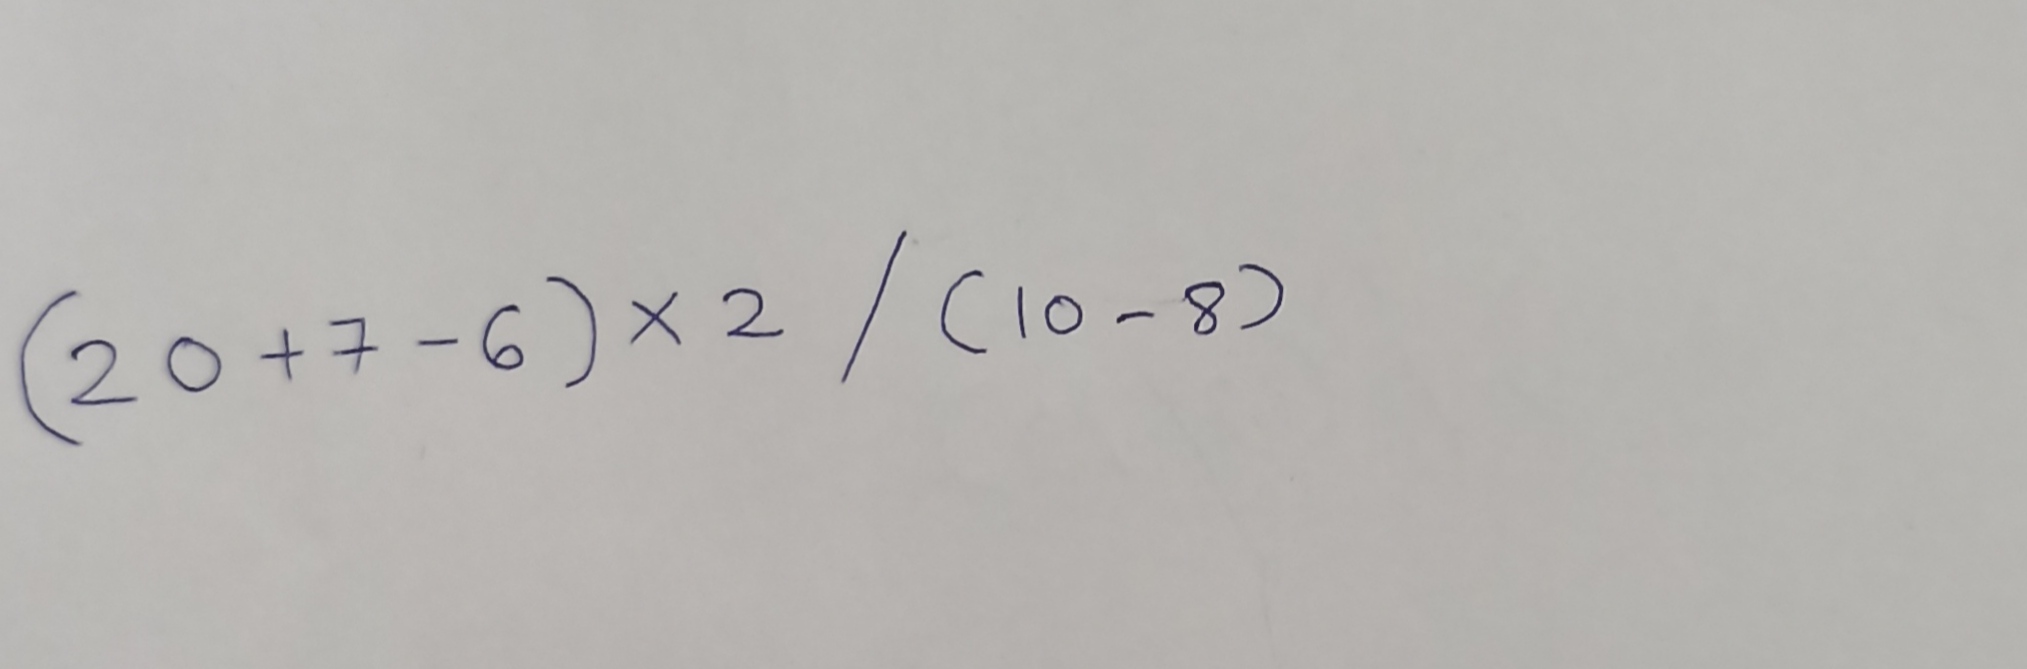 (20+7-6)×2/(10-8)